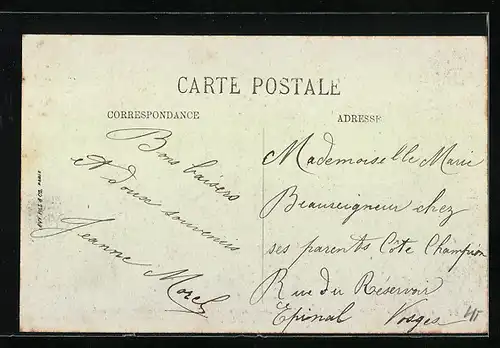 CARTE POSTALE
CORRESPONDANCE
ADRESSE
Bons baisers
et doux souvenirs
Jeanne Morel
Mademoiselle Marie
Beauseigneur chez
ses parents Côte Champion
Rue du Réservoir
Epinal Vosges